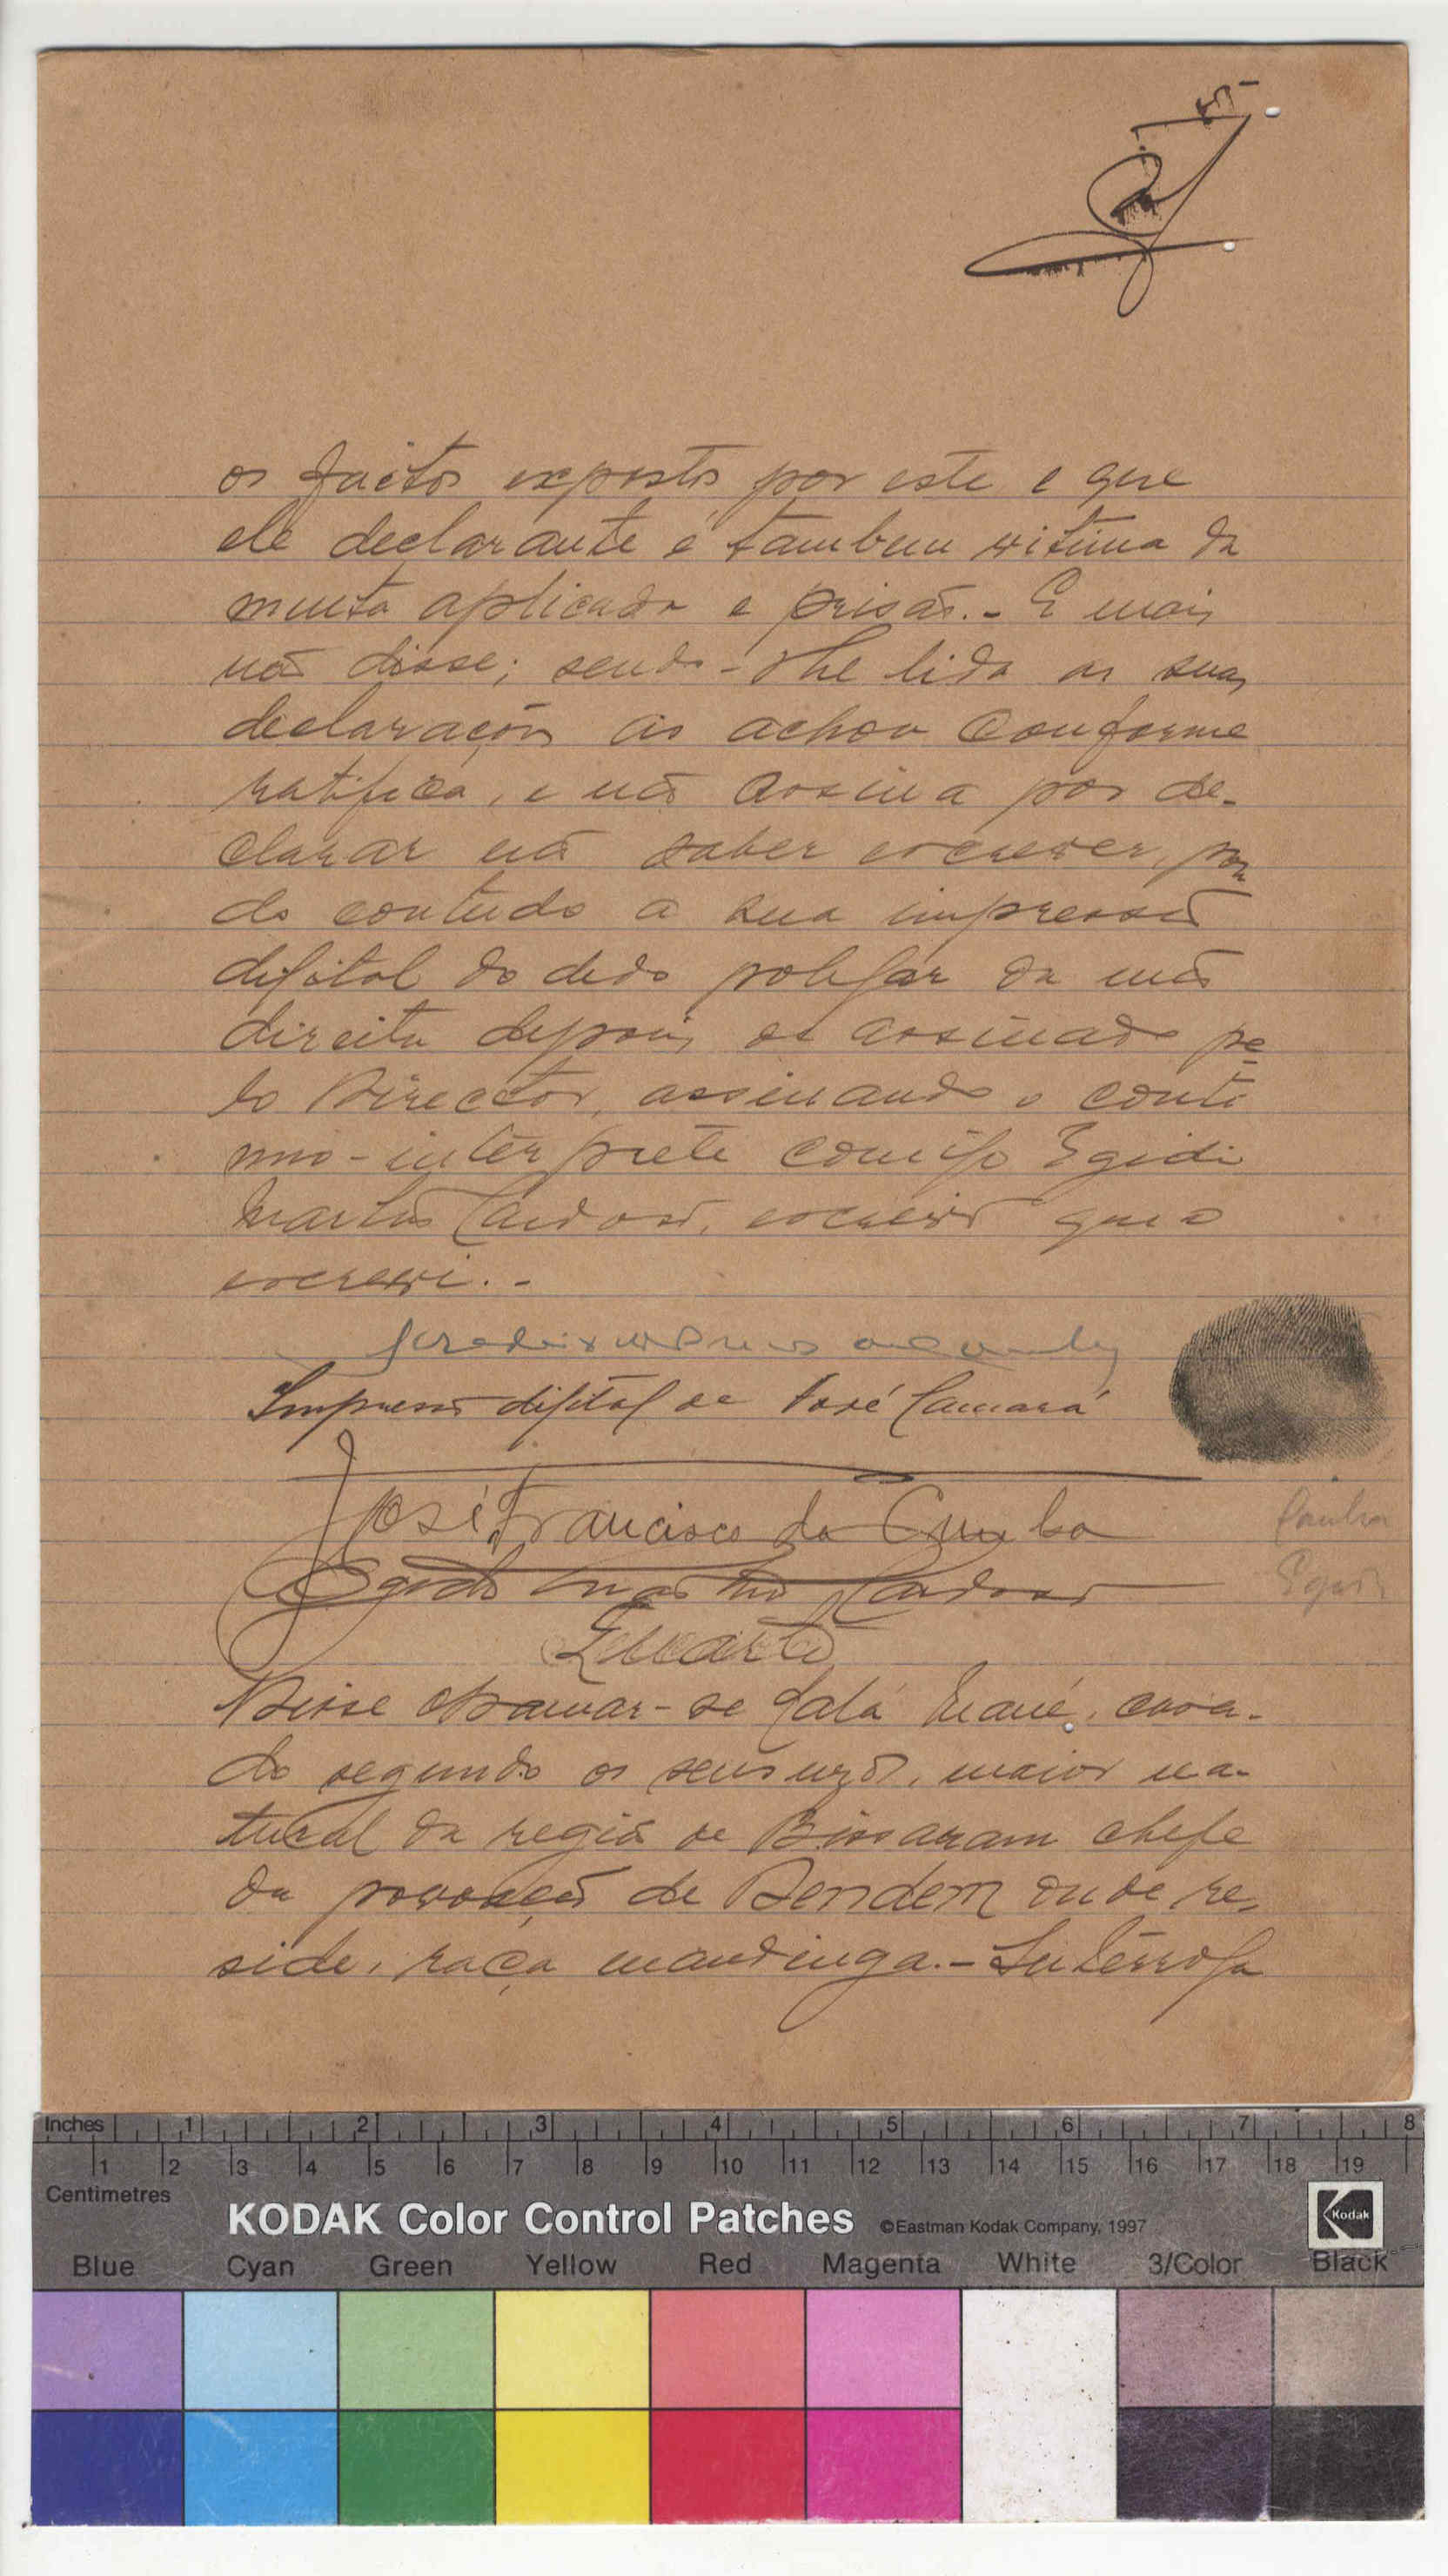 os factos expostos por este e que
ele declarante é tambem vitima da
multa aplicada e prisão.- E mais
não disse; sendo-lhe lida as suas
declarações as achou conforme
ratifica, e não assina por de-
clarar não saber escrever, pon
do contudo a sua impressão
digital do dedo polegar da mão
direita depois de assinado pe-
lo Director, assinando o conti
nuo-interprete comigo Egidio
Martins Cardoso, escrivão que o
escrevi.-
Impressão digital de José Camará
José Francisco da Cunha
Cunha
Egidio Martins Cardoso
Egidio
Quarto
Disse chamar-se Galá Mané, casa-
do segundo os seus usos, maior na-
tural da região de Bissaram chefe
da povoação de Dendem onde re-
side, raça mandinga.- Interroga
Inches 1 2 3 4 5 6 7 8
1 2 3 4 5 6 7 8 9 10 11 12 13 14 15 16 17 18 19
Centimetres
KODAK Color Control Patches ©Eastman Kodak Company, 1997 Kodak
Blue Cyan Green Yellow Red Magenta White 3/Color Black